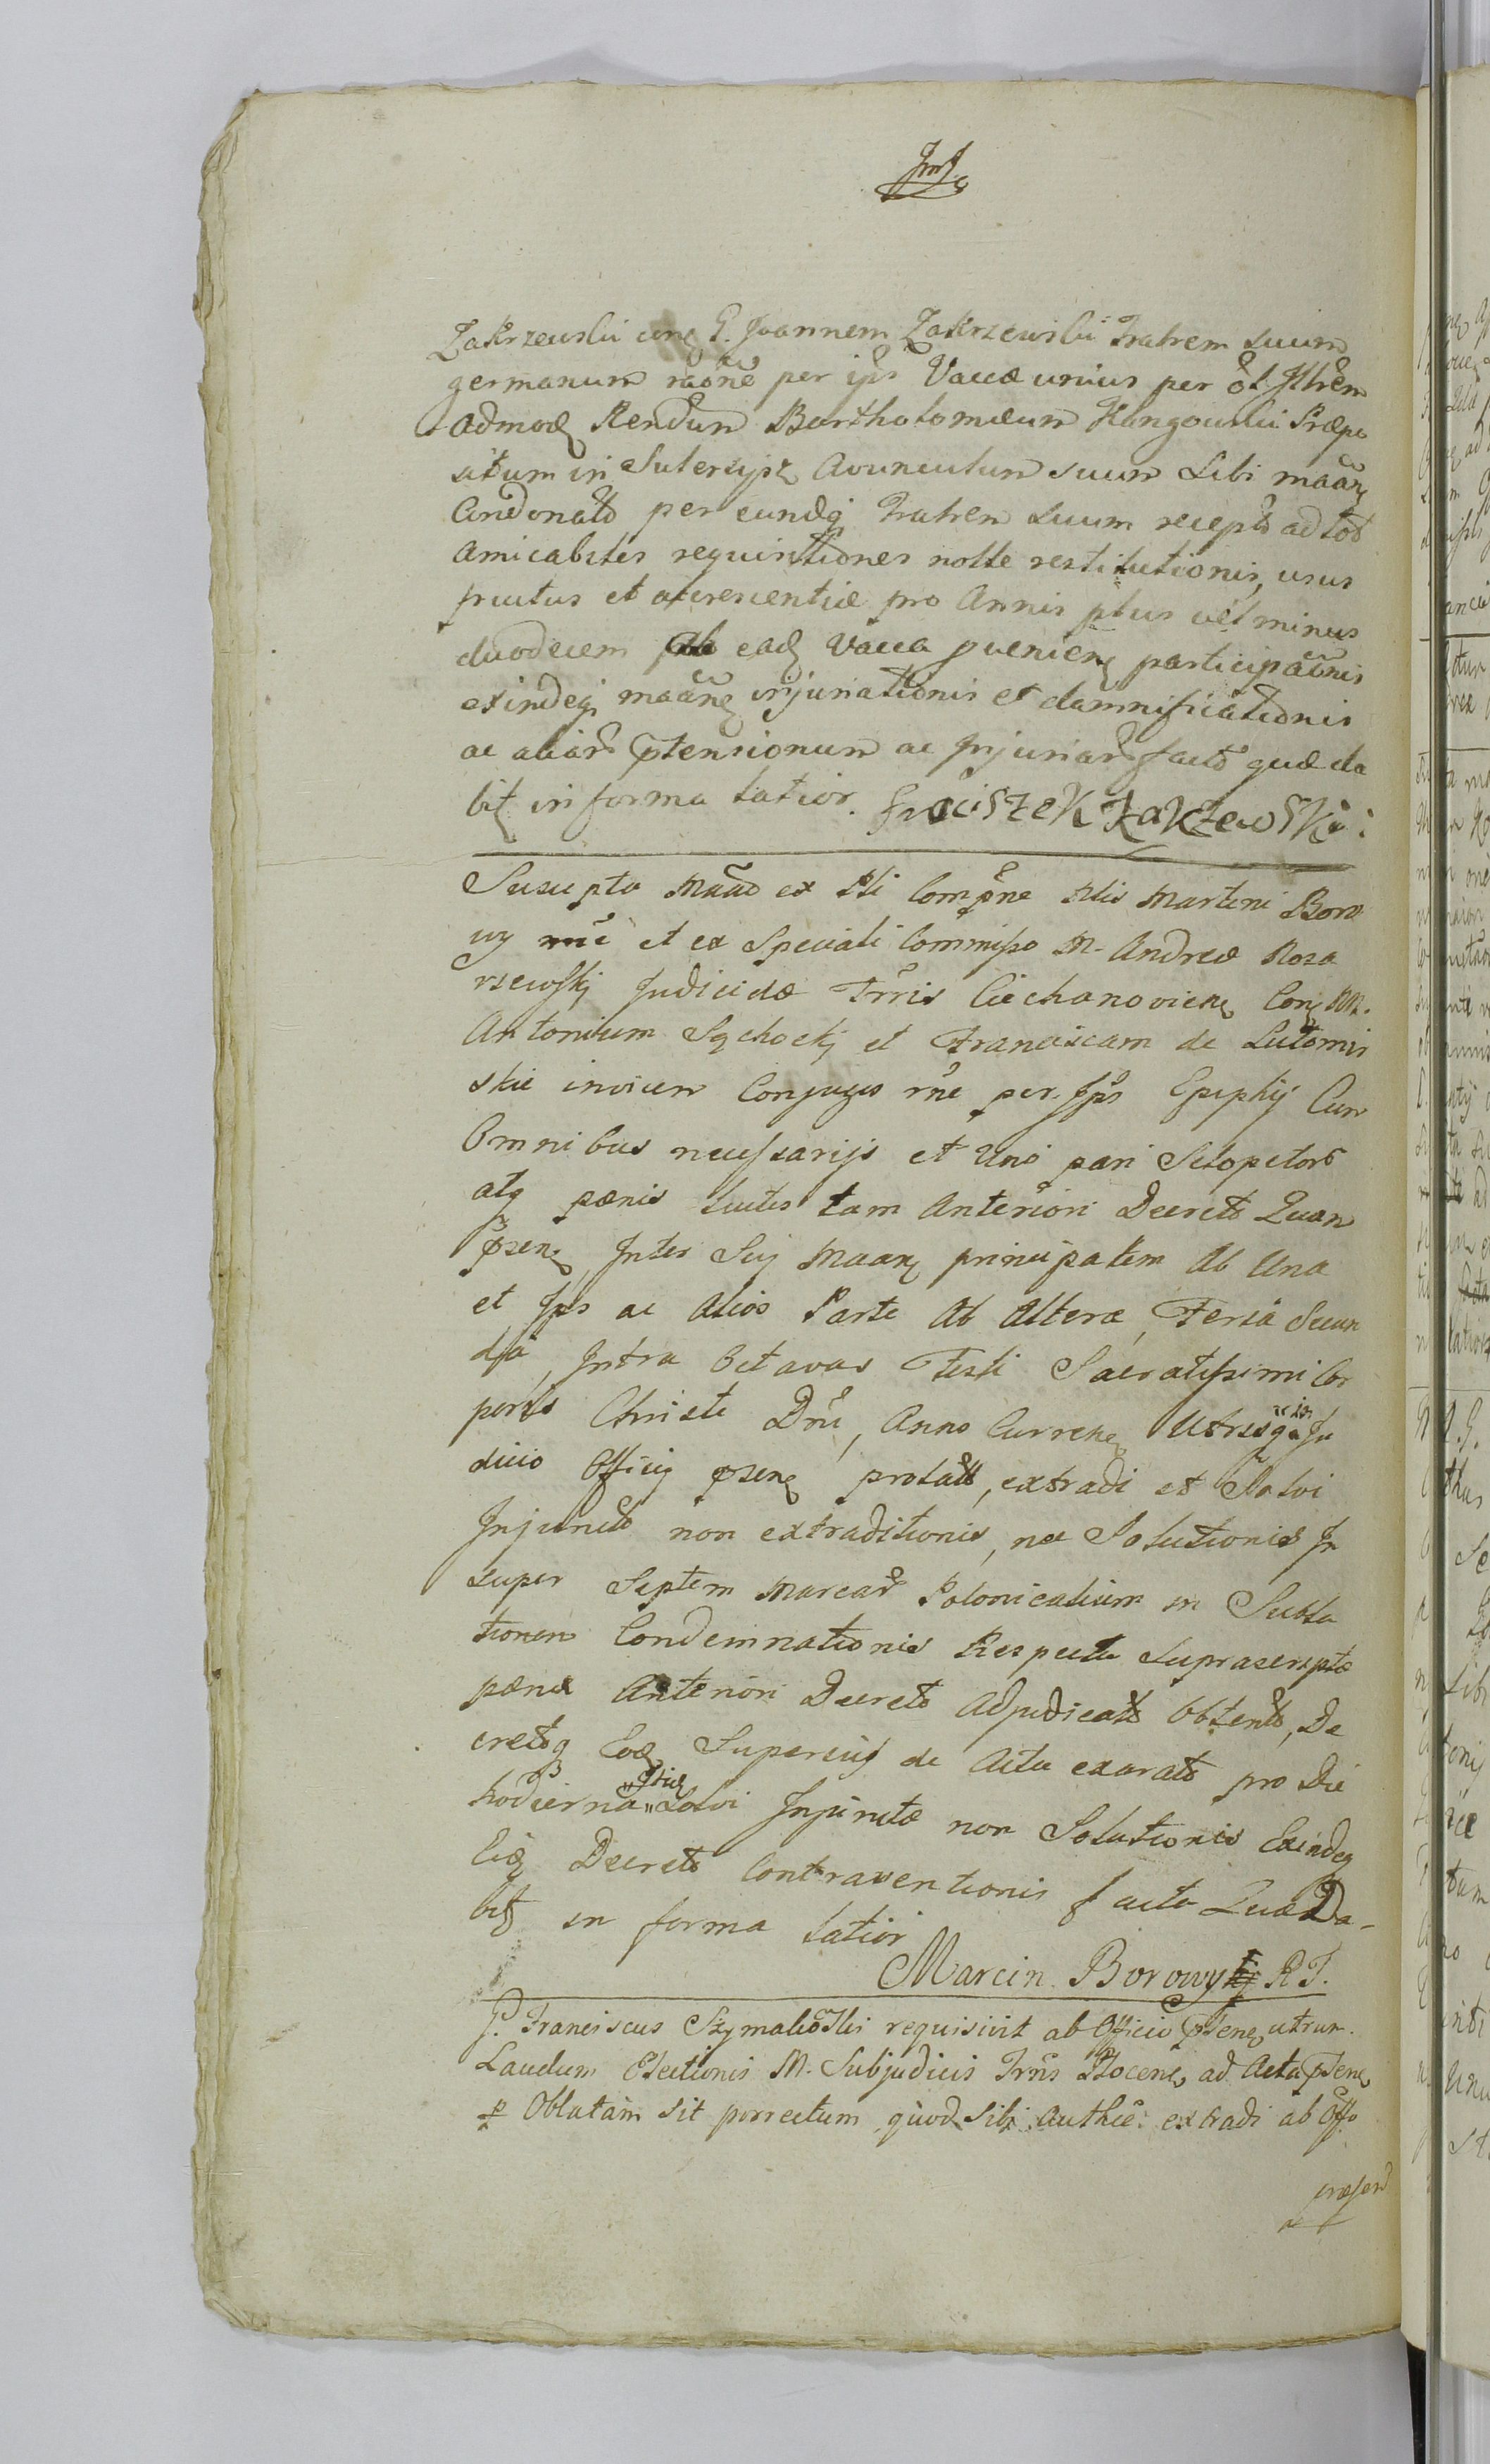 Zakrzewski conq G. Joannem Zakrzewski Fratrem suum
germanum raōne per ips Vaccæ unius per ol Illrem
admodq Rendum Bartholomæum Præpo
situm in Avunculum suum Sibi maanq
Condonato per eundq Fratrem suum recepto ad tot
amicabiles requisitiones nolle restitutionis, usus
fructus et accrescentiæ pro Annis plus vel minus
duodecem ab eadq Vacca pvenienq participaōnis
exindeqj maānq injuriationis et damnificationis
ac aliar ptensionum ac Injuriar facto quæ da
bit in forma latior. Franciszek Zakrzewski
Suscepto Maād ex Rli Compne Nlis Martini Boro
wy et ex Speciali Commisso M. Andreæ Koza
rzewskj Judicidæ Trris Ciechanovienq Conq MM.
Antonium Sąchockj et Franciscam de Lutomir
skie invicem Conjuges rne per Ips Ephipij Cum
Omnibus necessarijs et Uno pari Sclopetor
atq pænis luitis tam Anteriori Decreto Quam
psenq Inter Sui Maanq principalem Ab Una
et Ips ac alios Parte Ab Altera, Feria Secun
da, Intra Octavas Festi Sacratissimi Cor
poris Christi Dni, Anno Currenq Ju
dicio Officij psenq prolato, extradi et Solvi
Injuncto non extraditionis, nec Solutionis In
super Septem Marcar Polonicalium in Subla
tionem Condemnationis Respectu Suprascriptæ
pænæ Anteriori Decreto Adjudicato Obtento, De
cretoq Eodq Superius de Actu exarato pro Die
hodierna Solvi Injunctæ non Solutionis Exindeq
Eidq Decreto Contraventionis facto Quæ Da-
bit in forma latior
Marcin Borowy R T.
G. Franciscus Szymakowski requisivit ab Officio psenq utrum
Laudum Electionis M. Subjudicis Trris Plocenq ad Acta psenq
p Oblatam sit porrectum quod sibi authce extradi ab Offo
præsen